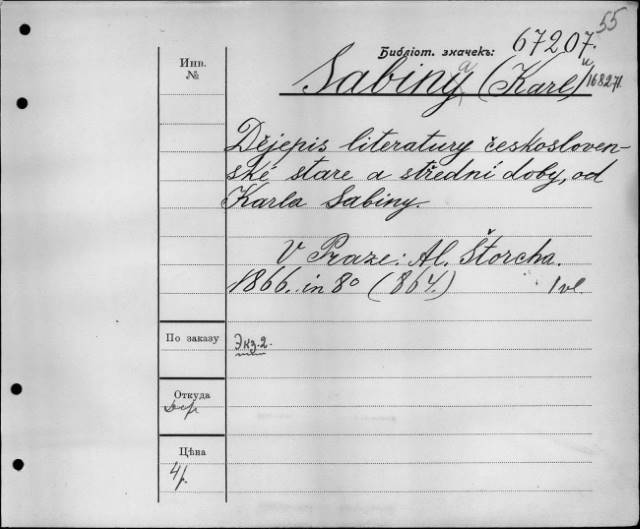 55
Библіот. значекъ: 67207.
Инв.
№
Sabiny a (Karel) и 168271.
Dějepis literatury českosloven-
ské stare a střední doby, od
Karla Sabiny.
V Praze: Al. Štorcha.
1866. in 8º (864.) 1 vl.
По заказу
Экз. 2.
Откуда
Цѣна
4 р.